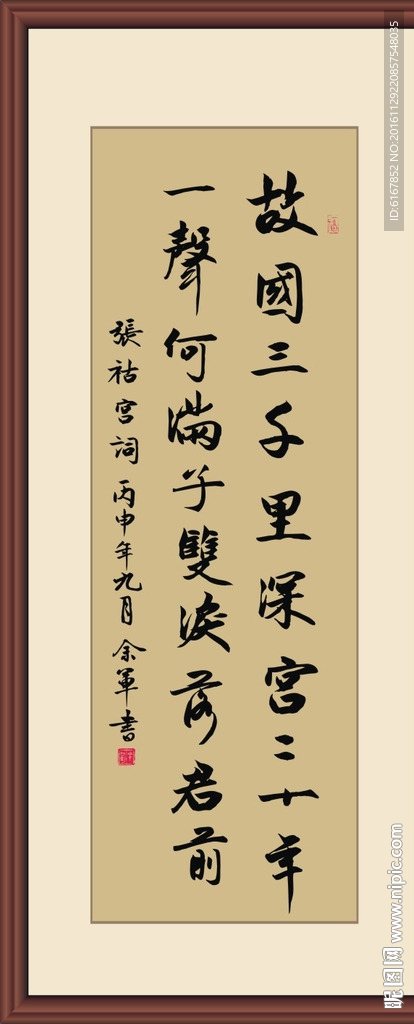 故國三千里深宮二十年
一聲何滿子雙淚落君前
張祜宮詞 丙申年九月 余軍書
ID:6167852 NO:20161129220857548035
昵图网 www.nipic.com